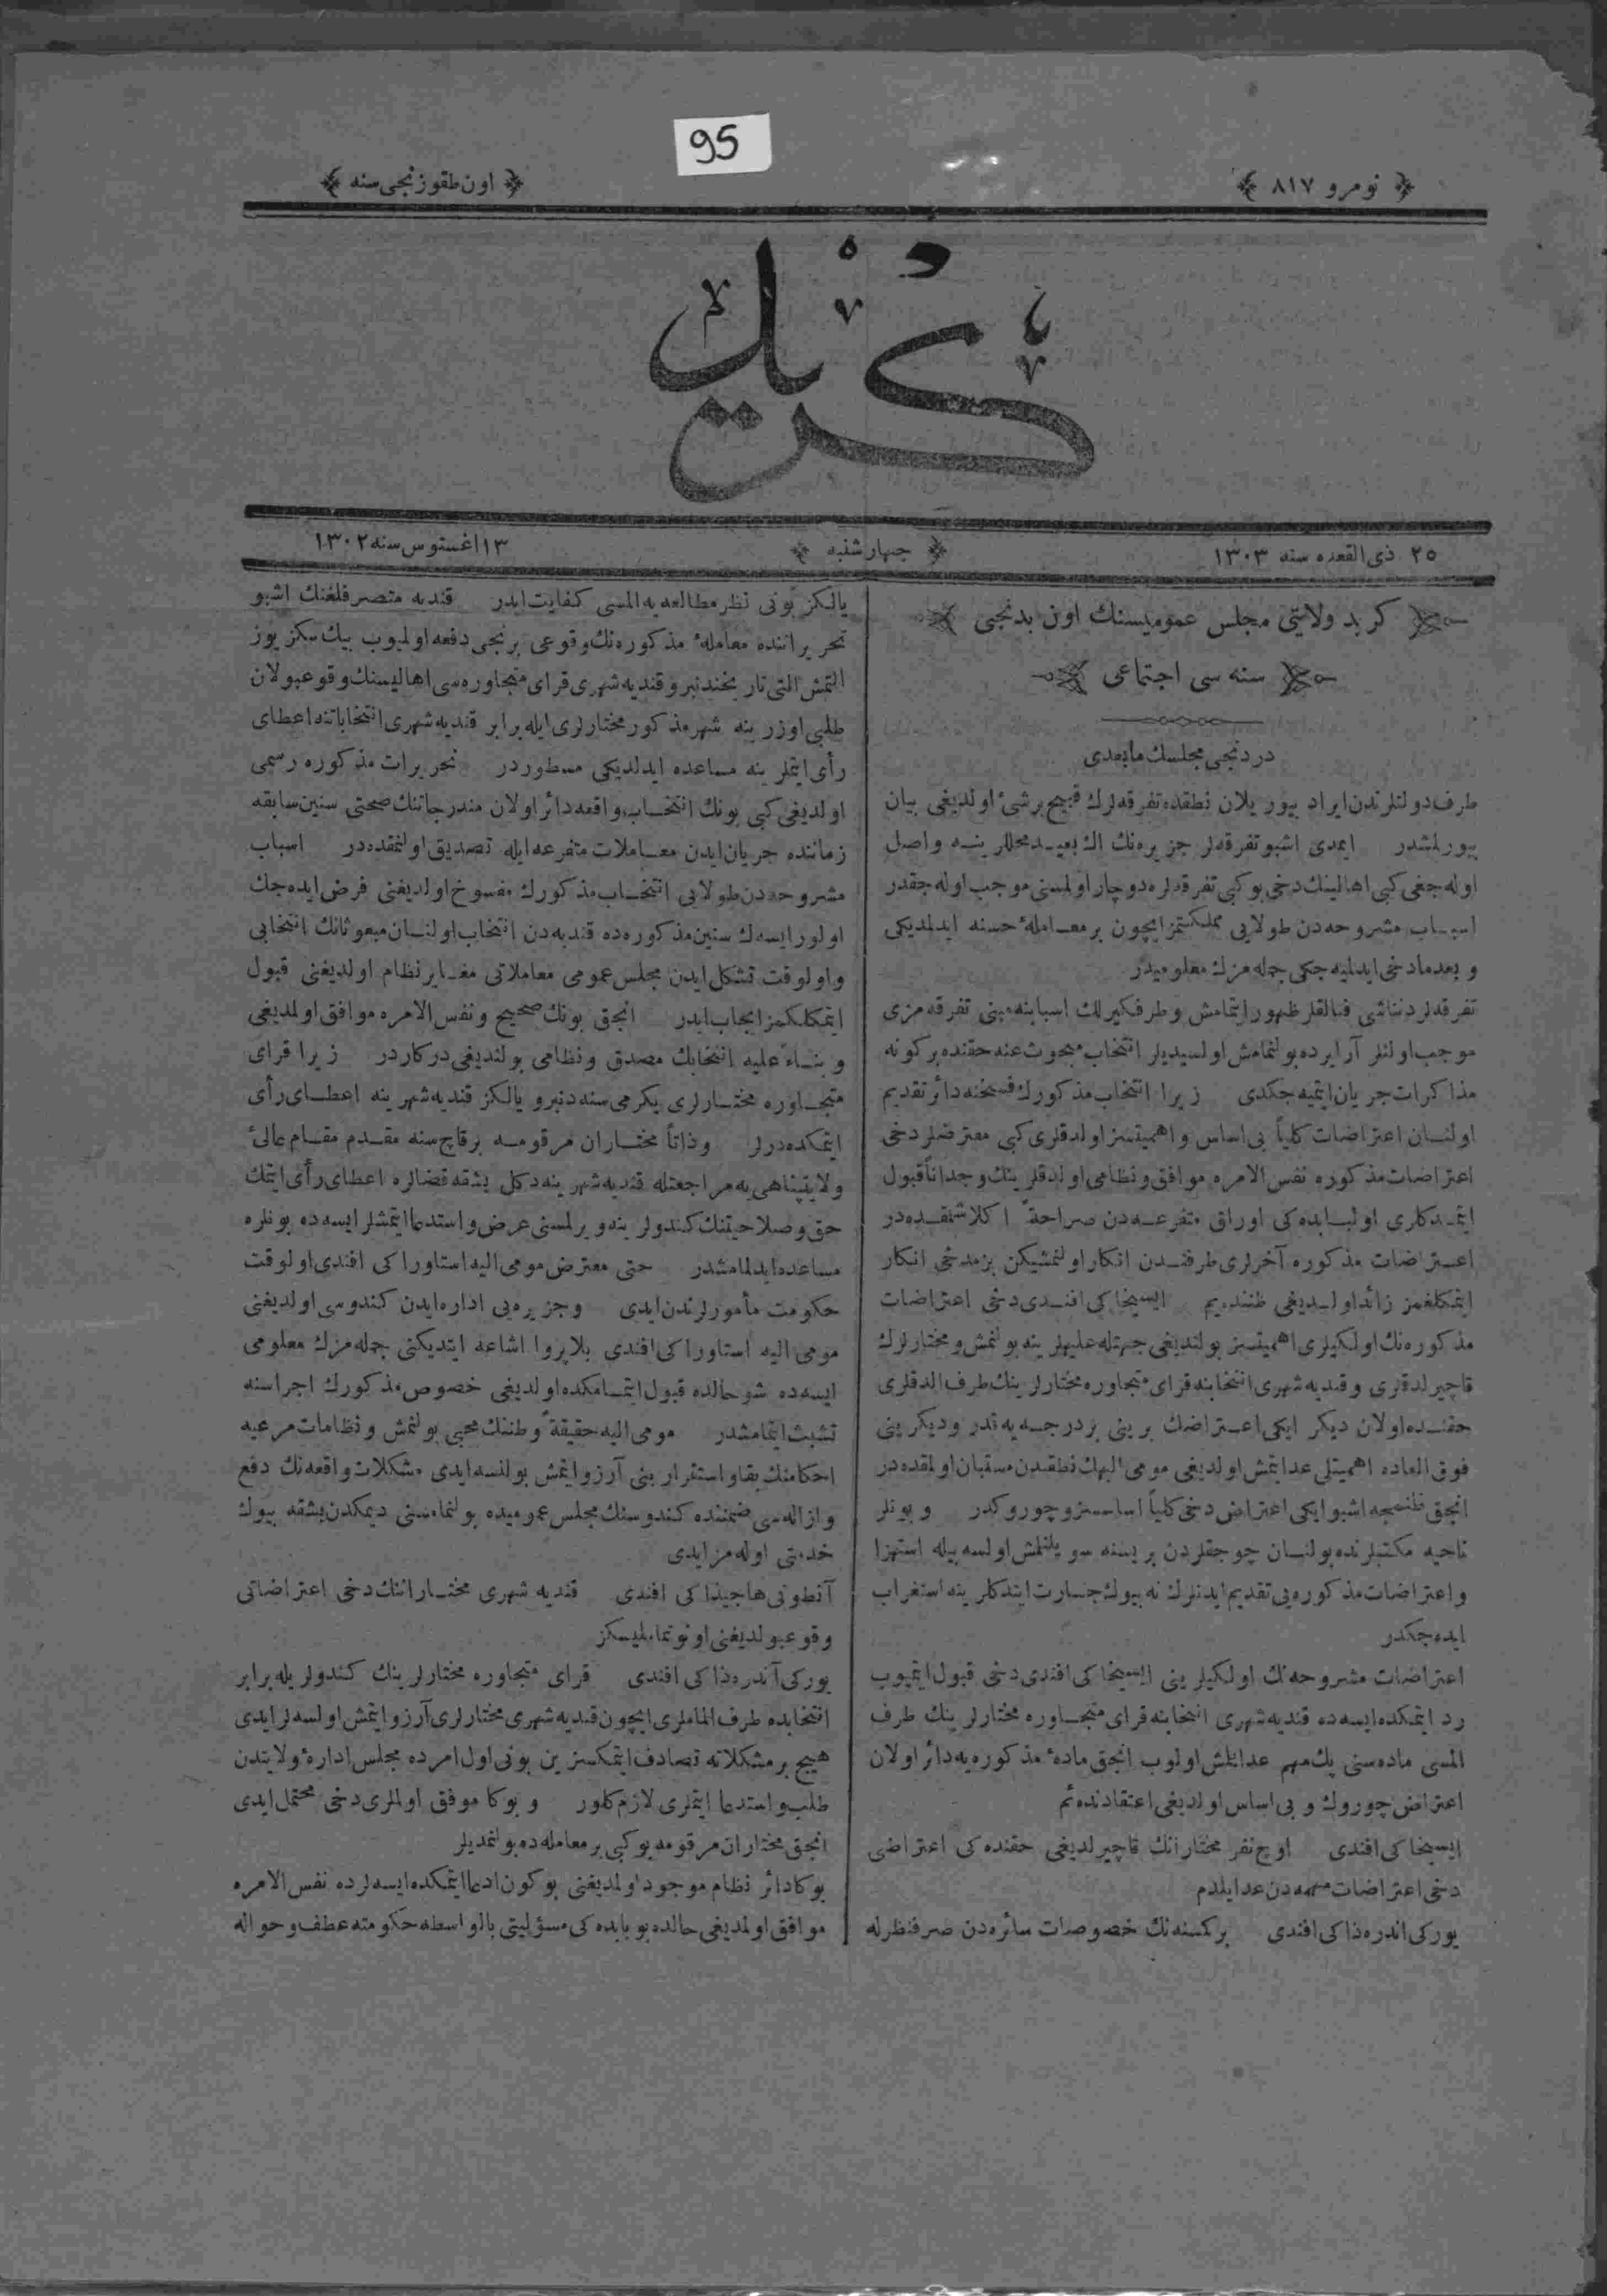 95
نومرو ٨١٧
اون طقوزنجی سنه
كريد
٢٥ ذی القعده سنه ١٣٠٣
چهارشنبه
١٣ اغستوس سنه ١٣٠٢
كريد ولايتی مجلس عموميسنك اون يدنجی
سنه سی اجتماعی
دردنجی مجلسك مابعدی
طرف دولتلرندن ايراد بيوريلان نطقده تفرقه لرك قبيح برشیٔ اولديغی بيان
بيورلمشدر ايمدی اشبو تفرقه لر جزيره نك اك بعيد محللرينه واصل
اوله جغی كبی اهالينك دخی بو كبی تفرقه لره دوچار اولمسنی موجب اوله جقدر
اسباب مشروحه دن طولايی مملكتمز ايچون بر معاملهٔ حسنه ايدلمديكی
و بعدمادخی ايدلميه جكی جمله مزك معلوميدر
تفرقه لردن ناشی فنالقلر ظهور ايتمامش و طرفكيرلك اسبابنه مبنی تفرقه مزی
موجب اولنلر آرايرده بولنمامش اولسيديلر انتخاب مبحوث عنه حقنده بركونه
مذاكرات جريان ايتميه جكدی زيرا انتخاب مذكورك فسخنه دائر تقديم
اولنان اعتراضات كلياً بی اساس و اهميتسز اولدقلری كبی معترضلر دخی
اعتراضات مذكوره نفس الامره موافق و نظامی اولدقلرينك وجداناً قبول
ايتمدكلری اولبابده كی اوراق متفرعه دن صراحةً اكلاشلقده در
اعتراضات مذكوره آخرلری طرفندن انكار اولنمشيكن بزمدخی انكار
ايتمكلكمز زائد اولديغی ظننده يم ايسيخاكی افندی دخی اعتراضات
مذكوره نك اولكيلری اهميتسز بولنديغی جهتله عليهلرينه بولنمش و مختارلرك
قاچيرلدقلری و قنديه شهری انتخابنه قرای متجاوره مختارلرينك طرف الدقلری
حقنده اولان ديكر ايكی اعتراضك برينی بر درجه يه قدر و ديكرينی
فوق العاده اهميتلی عد ايتمش اولديغی مومی اليهك نطقندن مستبان اولمقده در
انجق ظنمجه اشبو ايكی اعتراض دخی كلياً اساسسز و چوروكدر و بونلر
ناحيه مكتبلرنده بولنان چوجقلردن بريسنه سويلنلمش اولسه بيله استهزا
و اعتراضات مذكوره يی تقديم ايدنلرك نه بيوك جسارت ايتدكلرينه استغراب
ايده جكدر
اعتراضات مشروحه نك اولكيلرينی ايسيخاكی افندی دخی قبول ايتميوب
رد ايتمكده ايسه ده قنديه شهری انتخابنه قرای متجاوره مختارلرينك طرف
المسی ماده سنی پك مهم عد ايلمش اولوب انجق مادهٔ مذكوره يه دائر اولان
اعتراض چوروك و بی اساس اولديغی اعتقادنده ثم
ايسيخاكی افندی اوچ نفر مختارانك قاچيرلديغی حقنده كی اعتراضی
دخی اعتراضات مهمه دن عد ايلدم
يوركی اندره ذاكی افندی بركمسنه نك خصوصات سائره دن صرفنظرله
يالكز بونی نظر مطالعه يه المسی كفايت ايدر قنديه متصرفلغنك اشبو
تحريراتنده معاملهٔ مذكوره نك وقوعی برنجی دفعه اولميوب بيك سكز يوز
التمش التی تاريخندنبرو قنديه شهری قرای متجاوره سی اهاليسنك وقوعبولان
طلبی اوزرينه شهر مذكور مختارلری ايله برابر قنديه شهری انتخاباتنه اعطای
رأی ايتملرينه مساعده ايدلديكی مسطوردر تحريرات مذكوره رسمی
اولديغی كبی بونك انتخاب واقعه دائر اولان مندرجاتنك صحتی سنين سابقه
زماننده جريان ايدن معاملات متفرعه ايله تصديق اولنمقده در اسباب
مشروحه دن طولايی انتخاب مذكورك مفسوخ اولديغنی فرض ايده جك
اولورايسه ك سنين مذكوره ده قنديه دن انتخاب اولنان مبعوثانك انتخابی
و اولوقت تشكل ايدن مجلس عمومی معاملاتی مغاير نظام اولديغنی قبول
ايتمكلكمز ايجاب ايدر انجق بونك صحيح و نفس الامره موافق اولمديغی
و بناءً عليه انتخابك مصدق و نظامی بولنديغی دركاردر زيرا قرای
متجاوره مختارلری يكرمی سنه دنبرو يالكز قنديه شهرينه اعطای رأی
ايتمكده درلر و ذاتاً مختاران مرقومه برقاچ سنه مقدم مقام عالیٔ
ولايتپناهی يه مراجعتله قنديه شهرينه دكل بشقه قضالره اعطای رأی ايتمك
حق و صلاحيتنك كندولرينه ويرلمسنی عرض و استدعا ايتمشلر ايسه ده بونلره
مساعده ايدلمامشدر حتی معترض مومی اليه استاوراكی افندی اولوقت
حكومت مأمورلرندن ايدی و جزيره يی اداره ايدن كندوسی اولديغنی
مومی اليه استاوراكی افندی بلاپروا اشاعه ايتديكنی جمله مزك معلومی
ايسه ده شو حالده قبول ايتمامكده اولديغی خصوص مذكورك اجراسنه
تشبث ايتمامشدر مومی اليه حقيقةً وطننك محبی بولنمش و نظامات مرعيه
احكامنك بقا و استقرارينی آرزو ايتمش بولنسه ايدی مشكلات واقعه نك دفع
و ازاله سی ضمننده كندوسنك مجلس عموميده بولنمامسنی ديمكدن بشقه بيوك
خدمتی اوله مز ايدی
آنطونی هاجيذاكی افندی قنديه شهری مختارانك دخی اعتراضاتی
وقوعبولديغنی اونوتمامليسكز
يوركی آندره ذاكی افندی قرای متجاوره مختارلرينك كندولريله برابر
انتخابده طرف الماملری ايچون قنديه شهری مختارلری آرزو ايتمش اولسه لر ايدی
هيچ بر مشكلاته تصادف ايتمكسزين بونی اول امرده مجلس ادارهٔ ولايتدن
طلب و استدعا ايتملری لازم كلور و بوكا موفق اولملری دخی محتمل ايدی
انجق مختاران مرقومه بو كبی بر معامله ده بولنمديلر
بوكا دائر نظام موجود اولمديغنی بوكون ادعا ايتمكده ايسه لرده نفس الامره
موافق اولمديغی حالده بو بابده كی مسؤليتی بالواسطه حكومته عطف و حواله